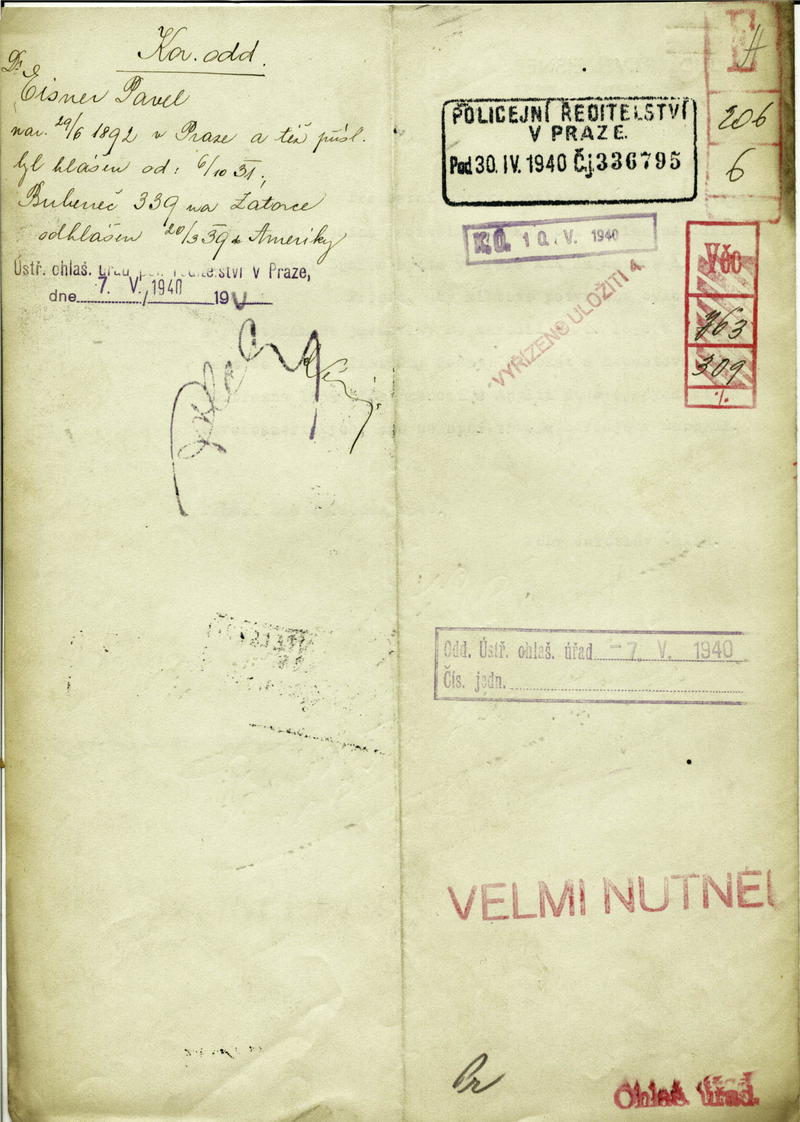 Ka. odd.
Dr
Eisner Pavel
nar. 29/6 1892 v Praze a též přísl.
byl hlášen od: 6/10 31.;
Bubeneč 339 na Zátorce
odhlášen 20/3 39 do Ameriky
Ústř. ohlaš. úřad pol. ředitelství v Praze,
dne 7. V. 1940 19
POLICEJNÍ ŘEDITELSTVÍ
V PRAZE.
Pod 30. IV. 1940 Č.j. 336795
206
6
K.O. 10. V. 1940
VYŘÍZENO ULOŽITI
Věc
763
309
Odd. Ústř. ohlaš. úřad -7. V. 1940
Čís. jedn.
VELMI NUTNÉ!
Ohlaš. úřad.